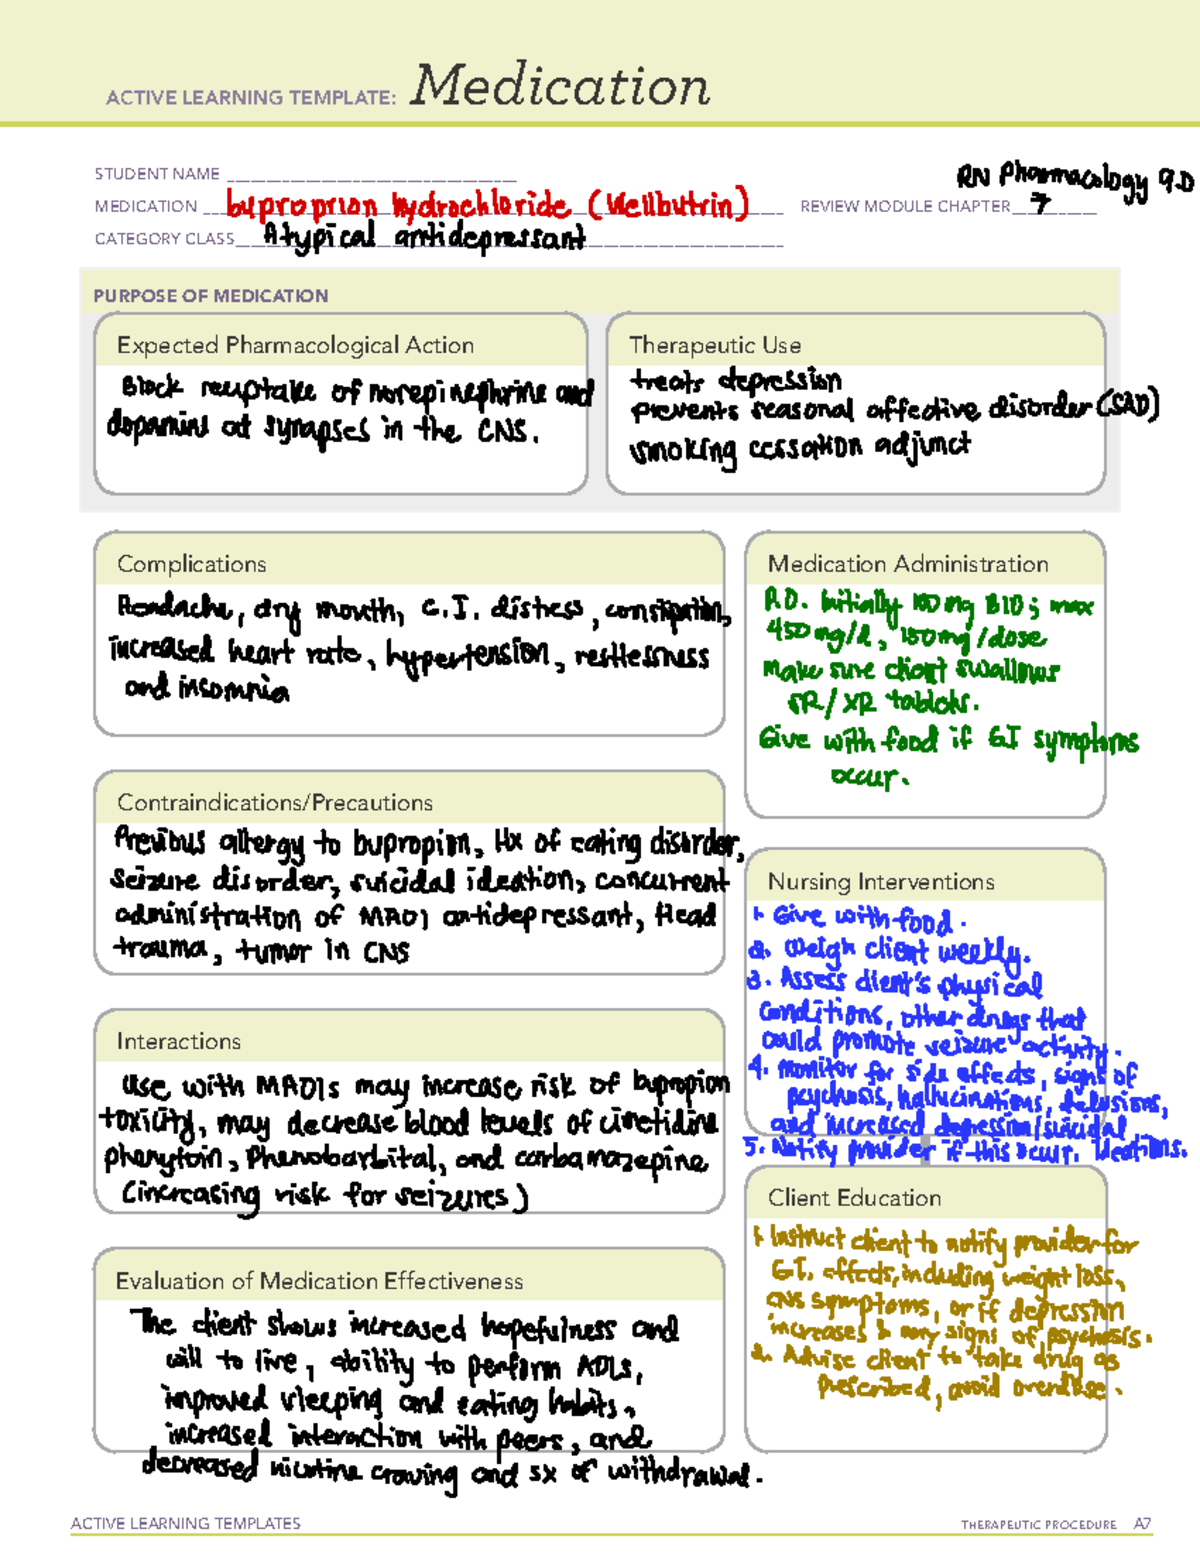 ACTIVE LEARNING TEMPLATE: Medication
STUDENT NAME
RN Pharmacology 9.0
MEDICATION buproprion hydrochloride (Wellbutrin) REVIEW MODULE CHAPTER 7
CATEGORY CLASS Atypical antidepressant
PURPOSE OF MEDICATION
Expected Pharmacological Action
Block reuptake of norepinephrine and
dopamine at synapses in the CNS.
Therapeutic Use
treats depression
prevents seasonal affective disorder (SAD)
smoking cessation adjunct
Complications
Headache, dry mouth, G.I. distress, constipation,
increased heart rate, hypertension, restlessness
and insomnia
Medication Administration
P.O. Initially 100 mg BID; max
450 mg/d, 150mg/dose
make sure client swallows
SR/XR tablets.
Give with food if GI symptoms
occur.
Contraindications/Precautions
Previous allergy to bupropion, Hx of eating disorder,
seizure disorder, suicidal ideation, concurrent
administration of MAOI antidepressant, Head
trauma, tumor in CNS
Nursing Interventions
1. Give with food.
2. Weigh client weekly.
3. Assess client's physical
conditions, other drugs that
could promote seizure activity.
4. Monitor for side effects, signs of
psychosis, hallucinations, delusions,
and increased depression/suicidal
5. Notify provider if this occur. ideations.
Interactions
Use with MAOIs may increase risk of bupropion
toxicity, may decrease blood levels of cimetidine
phenytoin, Phenobarbital, and carbamazepine
(increasing risk for seizures)
Client Education
1. Instruct client to notify provider for
G.I. effects, including weight loss,
CNS symptoms, or if depression
increases & any signs of psychosis.
2. Advise client to take drug as
prescribed, avoid overdose.
Evaluation of Medication Effectiveness
The client shows increased hopefulness and
will to live, ability to perform ADLs,
improved sleeping and eating habits,
increased interaction with peers, and
decreased nicotine craving and sx of withdrawal.
ACTIVE LEARNING TEMPLATES
THERAPEUTIC PROCEDURE A7